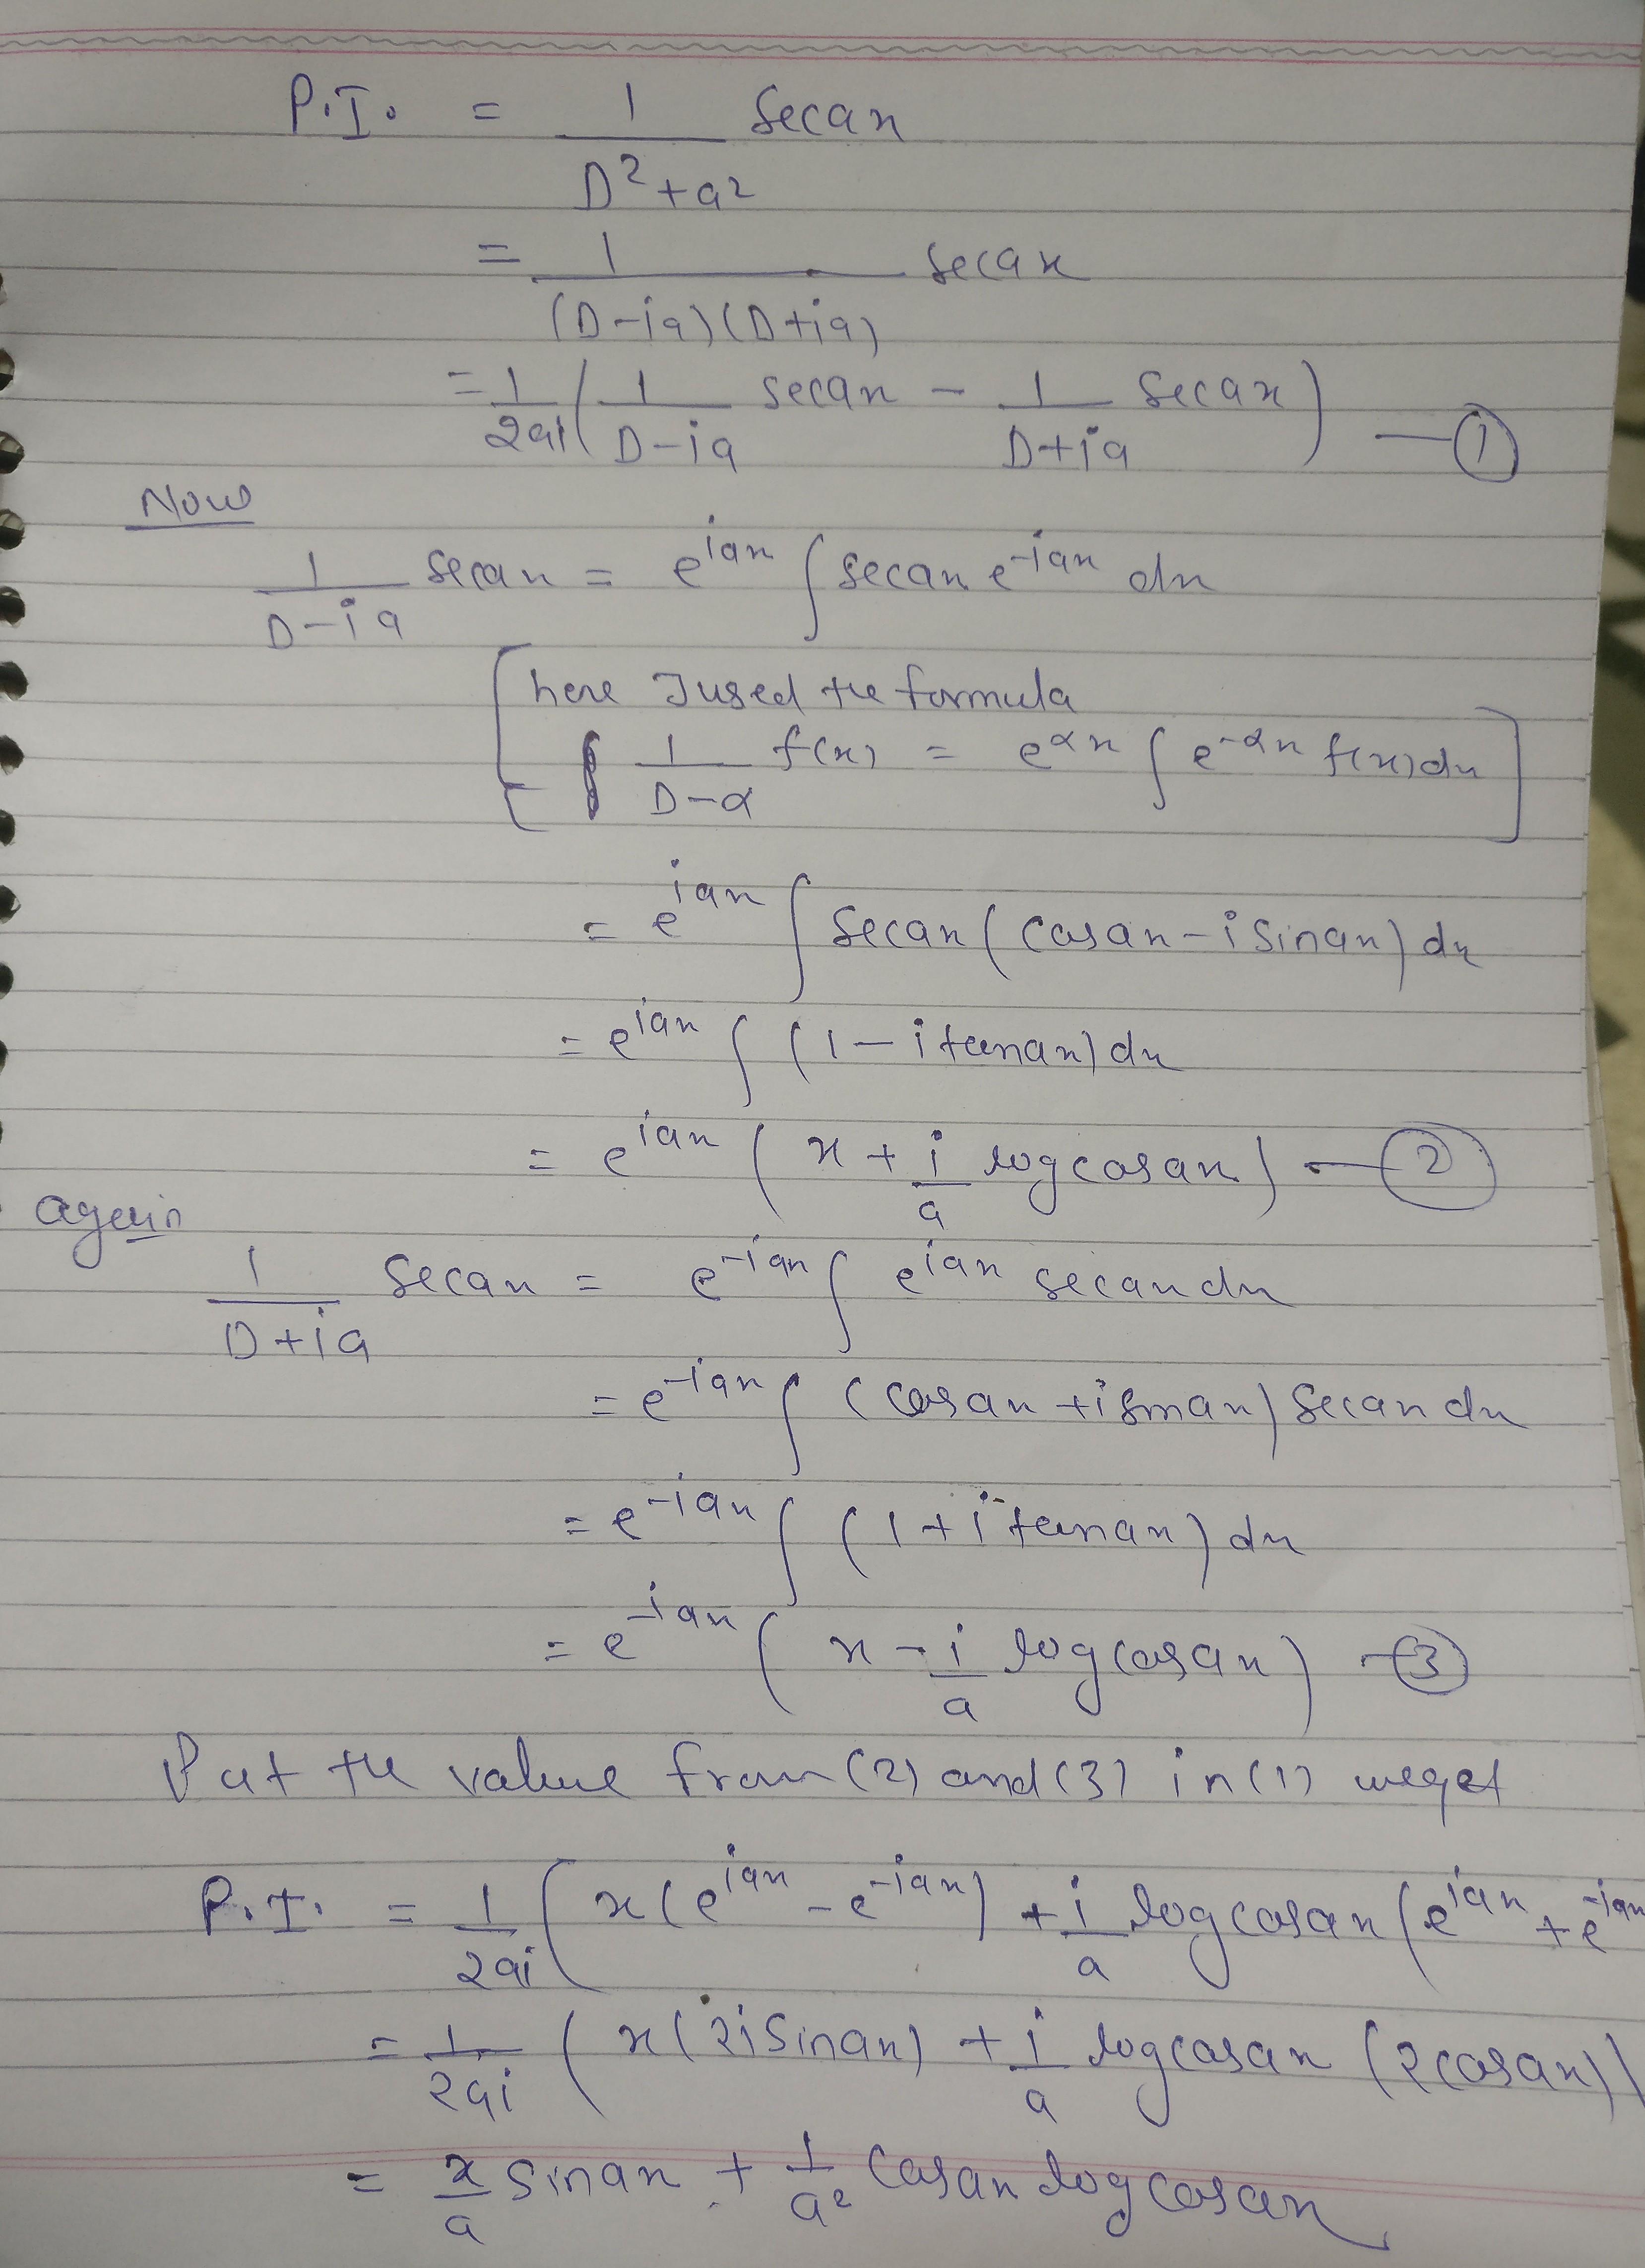 P.I. = 1/(D²+a²) secax
= 1/((D-ia)(D+ia)) secax
= 1/2ai ( 1/(D-ia) secax - 1/(D+ia) secax ) — ①
Now
1/(D-ia) secax = e^{iax} ∫ secax e^{-iax} dx
[ here I used the formula
1/(D-α) f(x) = e^{αx} ∫ e^{-αx} f(x)dx ]
= e^{iax} ∫ secax (cosax - i sinax) dx
= e^{iax} ∫ (1 - i tanax) dx
= e^{iax} ( x + i/a log cosax ) — ②
again
1/(D+ia) secax = e^{-iax} ∫ e^{iax} secax dx
= e^{-iax} ∫ (cosax + i sinax) secax dx
= e^{-iax} ∫ (1 + i tanax) dx
= e^{-iax} ( x - i/a log cosax ) — ③
Put the value from (2) and (3) in (1) we get
P.I. = 1/2ai ( x(e^{iax} - e^{-iax}) + i/a log cosax (e^{iax} + e^{-iax}
= 1/2ai ( x(2i sinax) + i/a log cosax (2cosax) )
= x/a sinax + 1/a² cosax log cosax